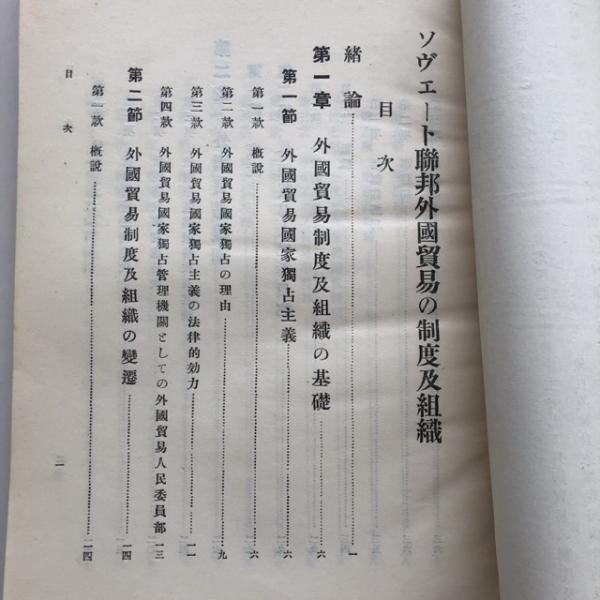 ソヴェート聯邦外國貿易の制度及組織
目次
緒論……一
第一章 外國貿易制度及組織の基礎……六
第一節 外國貿易國家獨占主義……六
第一款 槪說……六
第二款 外國貿易國家獨占の理由……九
第三款 外國貿易國家獨占主義の法律的効力……一一
第四款 外國貿易國家獨占管理機關としての外國貿易人民委員部……一三
第二節 外國貿易制度及組織の變遷……一四
第一款 槪說……一四
目次
一